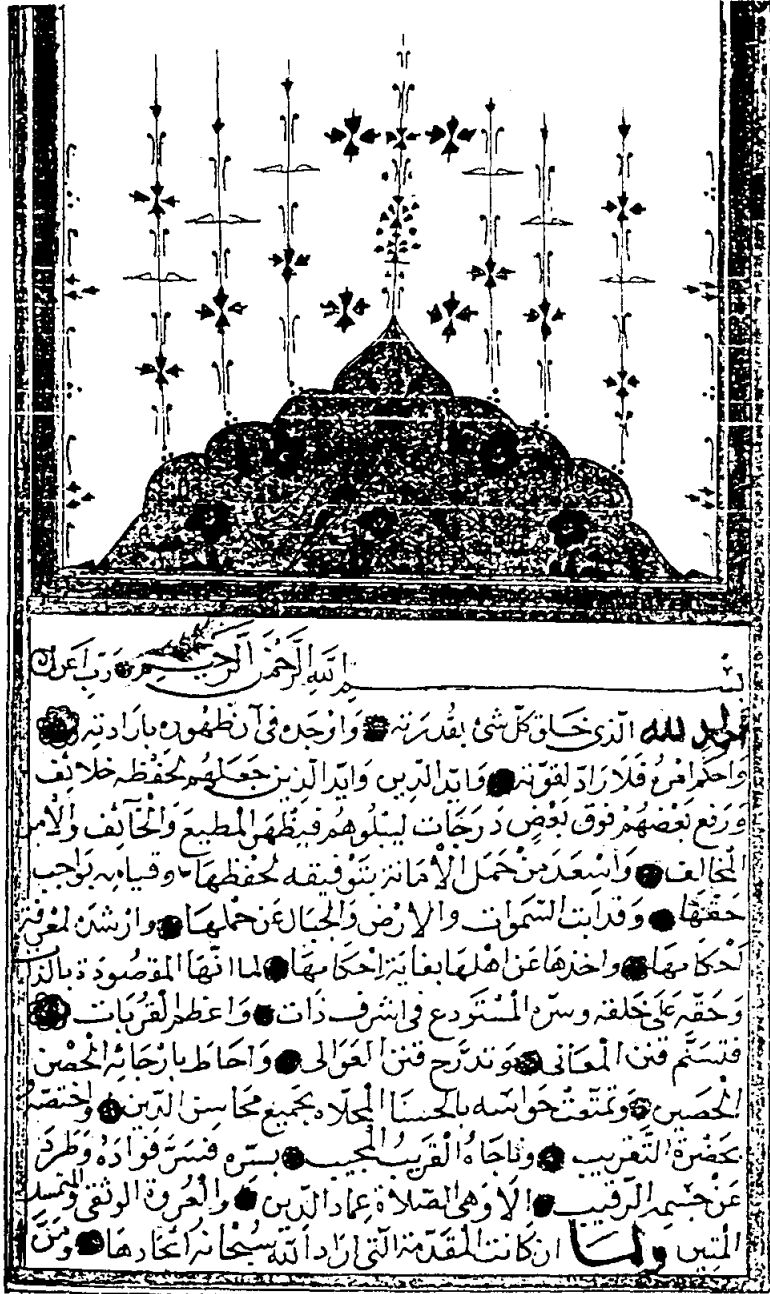 بسم الله الرحمن الرحيم رب أعن
الحمد لله الذى خلق كل شئ بقدرته وأوجده فى آن ظهوره بارادته
وأحكم أمره فلا راد لقوته وأيد الدين وأيد الذين جعلهم لحفظه خلائف
ورفع بعضهم فوق بعض درجات ليبلوهم فيظهر المطيع والخائف والأمر
المخالف وأسعد من حمل الأمانة بتوفيقه لحفظها وقيامه بواجب
حقها وقد ابت السموات والارض والجبال عن حملها وارشده لمعرفة
أحكامها واخذها عن اهلها بغاية إحكامها لما انها المقصودة بالذات
وحقه على خلقه وسره المستودع فى اشرف ذات واعظم القربات
فتسنم قنن المعانى وتدرج قنن العوالى وأحاط بارجائه الحصن
الحصين وتمتعت حواسه بالحسنا المحلاه بجميع محاسن الدين واختصه
بحضرة التقريب وناجاه القريب المجيب بسره فسر فؤاده وطرد
عن جسمه الرقيب الا وهى الصلاة عماد الدين والعروة الوثقى
المتين ولما ان كانت المقدمة التى اراد الله سبحانه اتحادها ومن